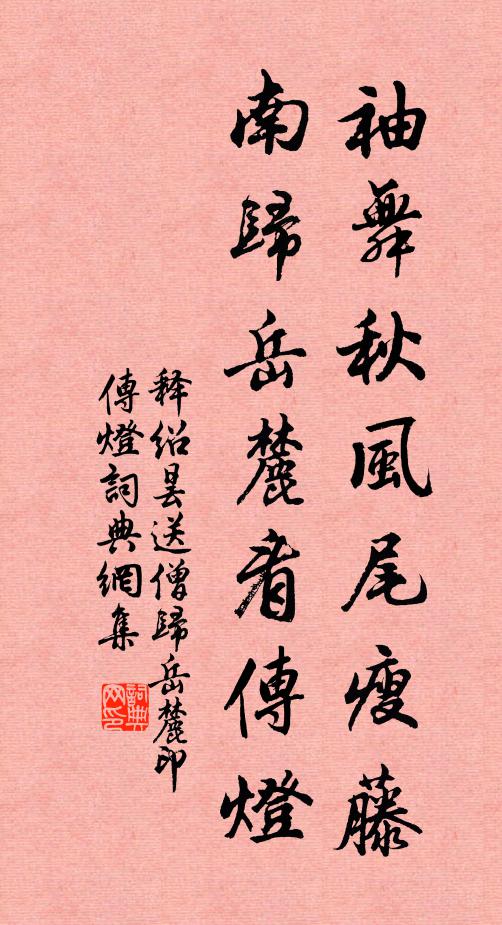 袖舞秋風尾瘦藤
南歸岳麓看傳燈
释紹曇送僧歸岳麓印
傳燈詞典網集
詞典網印